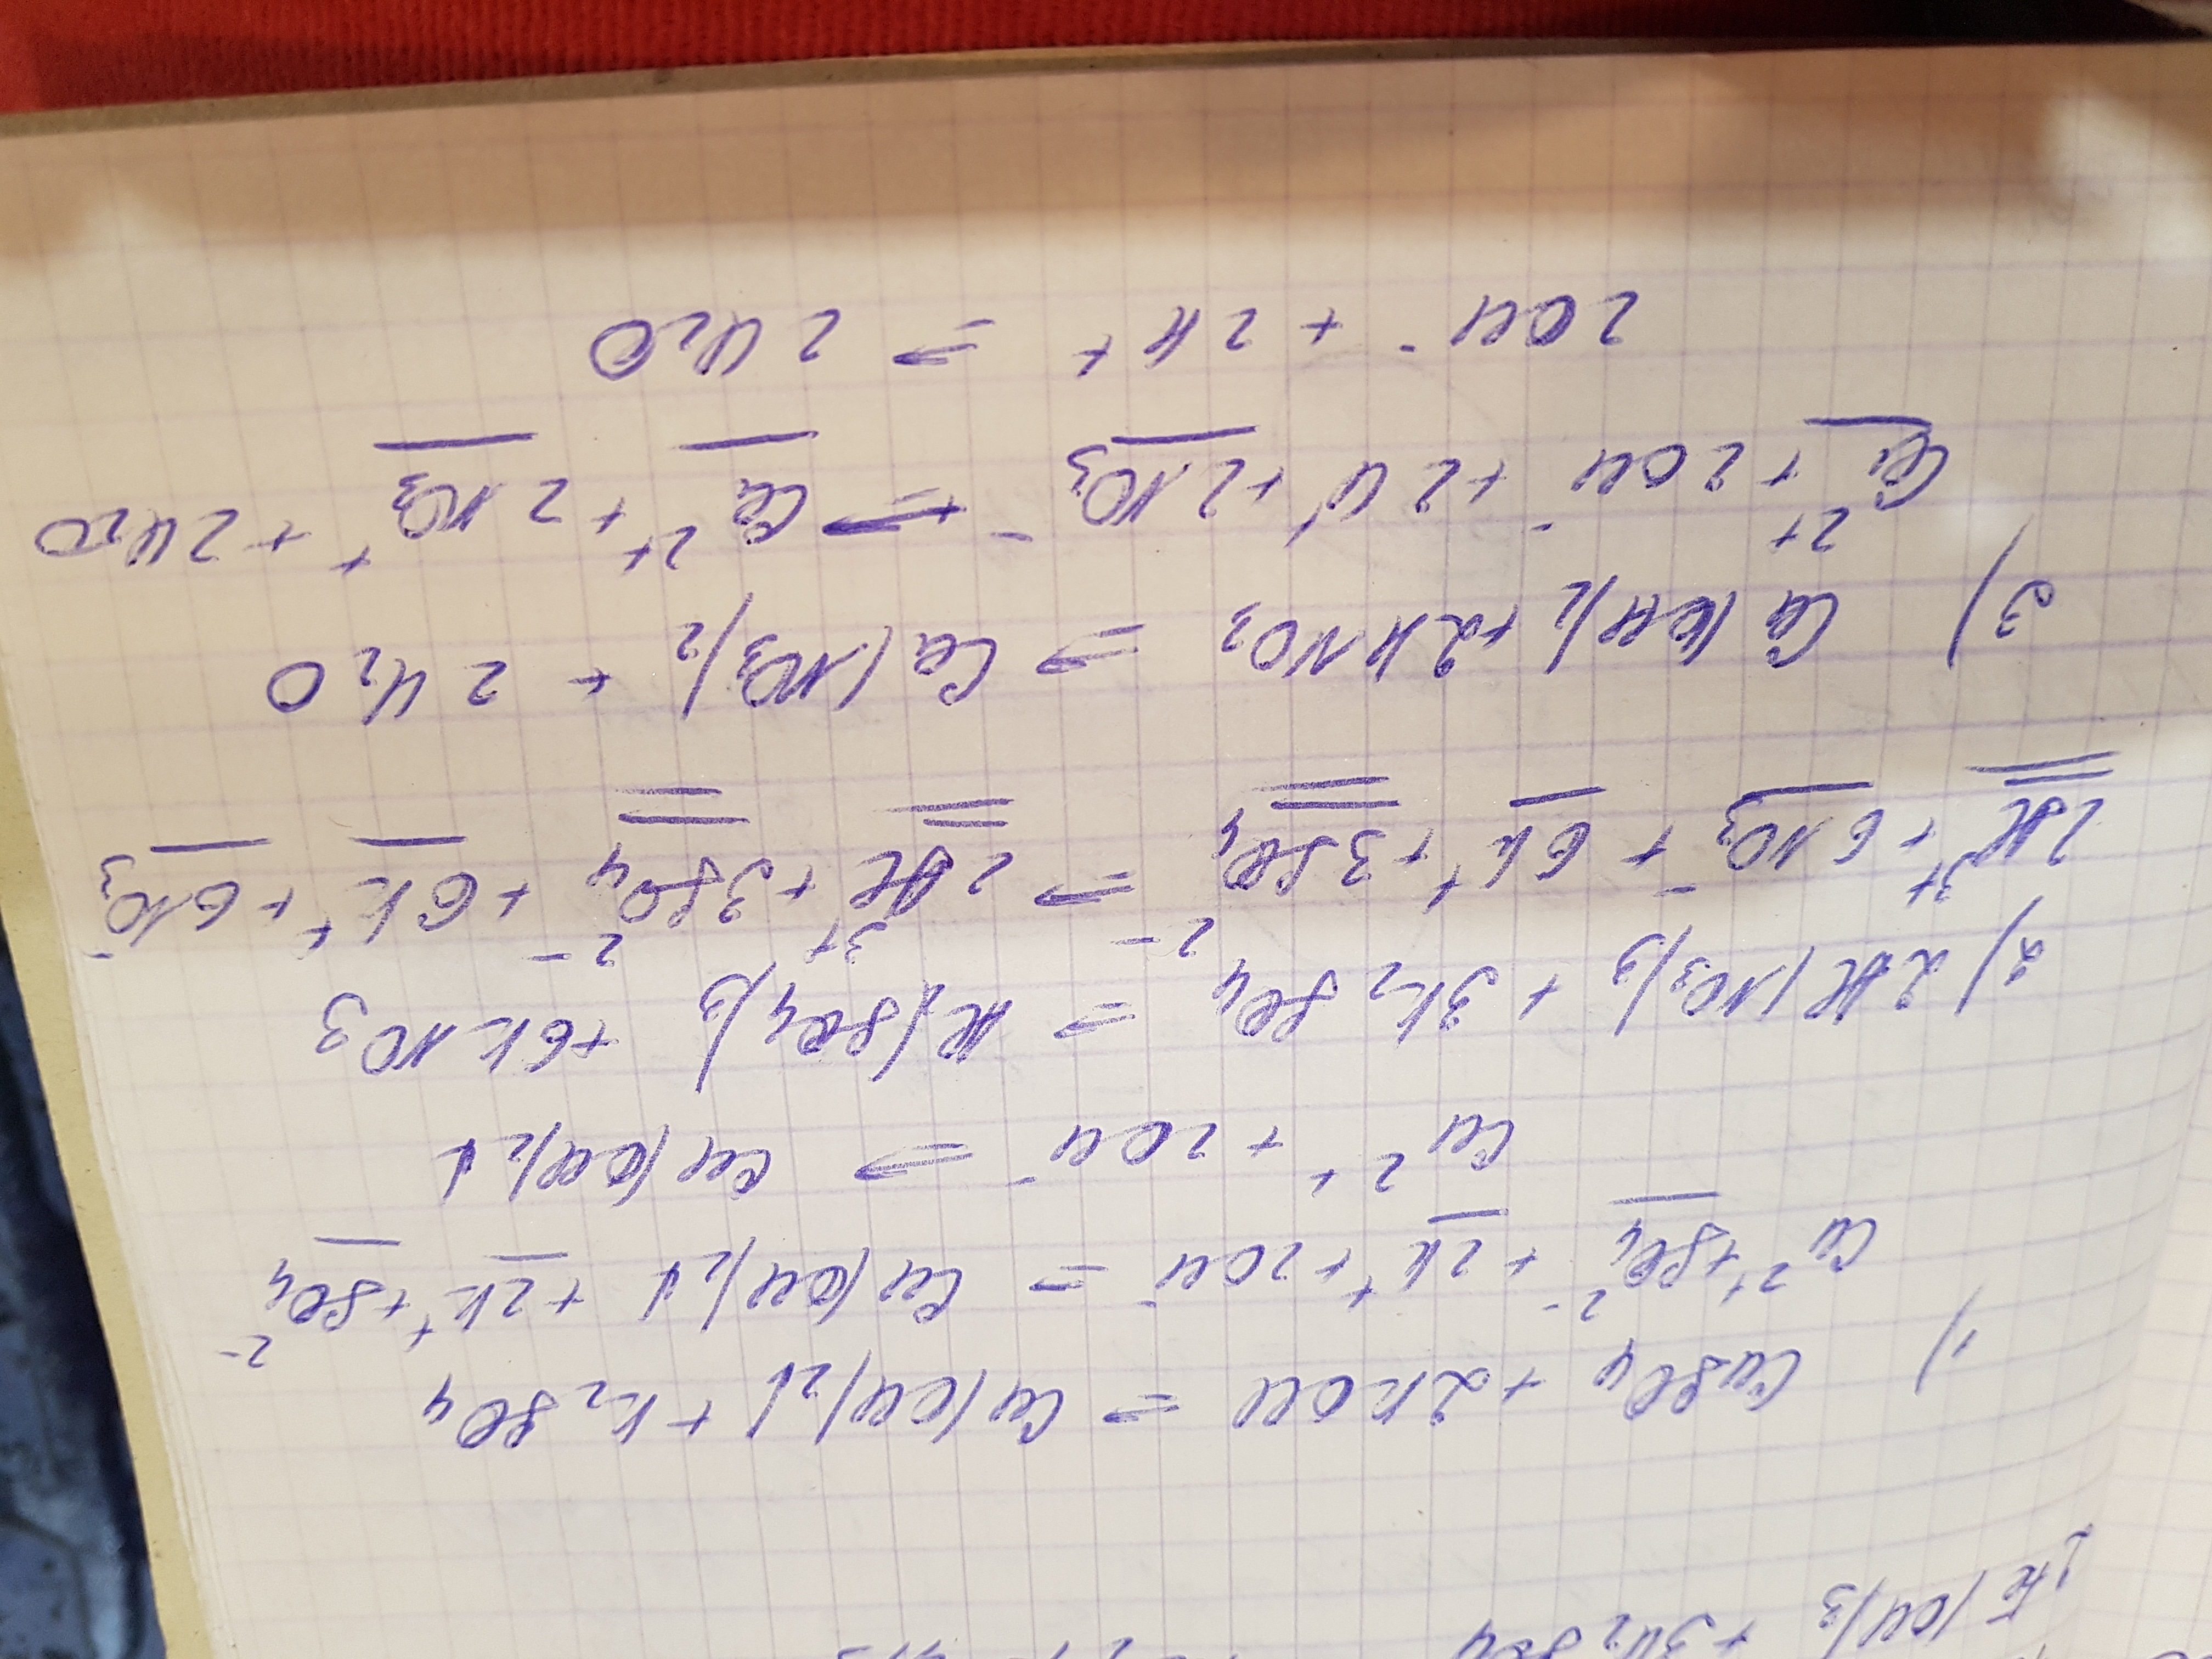 2Fe(OH)3 + 3H2SO4
1) CuSO4 + 2KOH => Cu(OH)2↓ + K2SO4
Cu2+ + SO4 2- + 2K+ + 2OH- => Cu(OH)2↓ + 2K+ + SO4 2-
Cu2+ + 2OH- => Cu(OH)2↓
2) 2Al(NO3)3 + 3K2SO4 => Al2(SO4)3 + 6KNO3
2Al3+ + 6NO3- + 6K+ + 3SO4 2- => 2Al3+ + 3SO4 2- + 6K+ + 6NO3-
3) Ca(OH)2 + 2HNO3 => Ca(NO3)2 + 2H2O
Ca2+ + 2OH- + 2H+ + 2NO3- => Ca2+ + 2NO3+ + 2H2O
2OH- + 2H+ => 2H2O